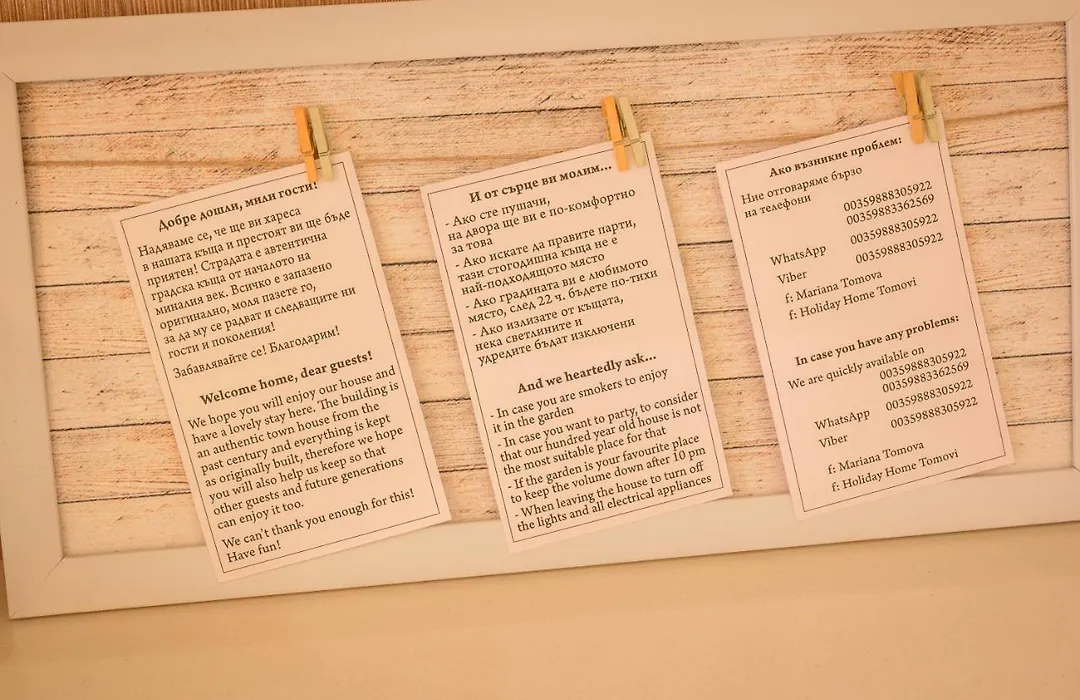 Добре дошли, мили гости!
Надяваме се, че ще ви хареса
в нашата къща и престоят ви ще бъде
приятен! Страдата е автентична
градска къща от началото на
миналия век. Всичко е запазено
оригинално, моля пазете го,
за да му се радват и следващите ни
гости и поколения!
Забавлявайте се! Благодарим!
Welcome home, dear guests!
We hope you will enjoy our house and
have a lovely stay here. The building is
an authentic town house from the
past century and everything is kept
as originally built, therefore we hope
you will also help us keep so that
other guests and future generations
can enjoy it too.
We can't thank you enough for this!
Have fun!
И от сърце ви молим...
- Ако сте пушачи,
на двора ще ви е по-комфортно
за това
- Ако искате да правите парти,
тази стогодишна къща не е
най-подходящото място
- Ако градината ви е любимото
място, след 22 ч. бъдете по-тихи
- Ако излизате от къщата,
нека светлините и
уредите бъдат изключени
And we heartedly ask...
- In case you are smokers to enjoy
it in the garden
- In case you want to party, to consider
that our hundred year old house is not
the most suitable place for that
- If the garden is your favourite place
to keep the volume down after 10 pm
- When leaving the house to turn off
the lights and all electrical appliances
Ако възникне проблем:
Ние отговаряме бързо
на телефони 00359888305922
00359883362569
WhatsApp 00359888305922
Viber 00359888305922
f: Mariana Tomova
f: Holiday Home Tomovi
In case you have any problems:
We are quickly available on
00359888305922
00359883362569
WhatsApp 00359888305922
Viber 00359888305922
f: Mariana Tomova
f: Holiday Home Tomovi